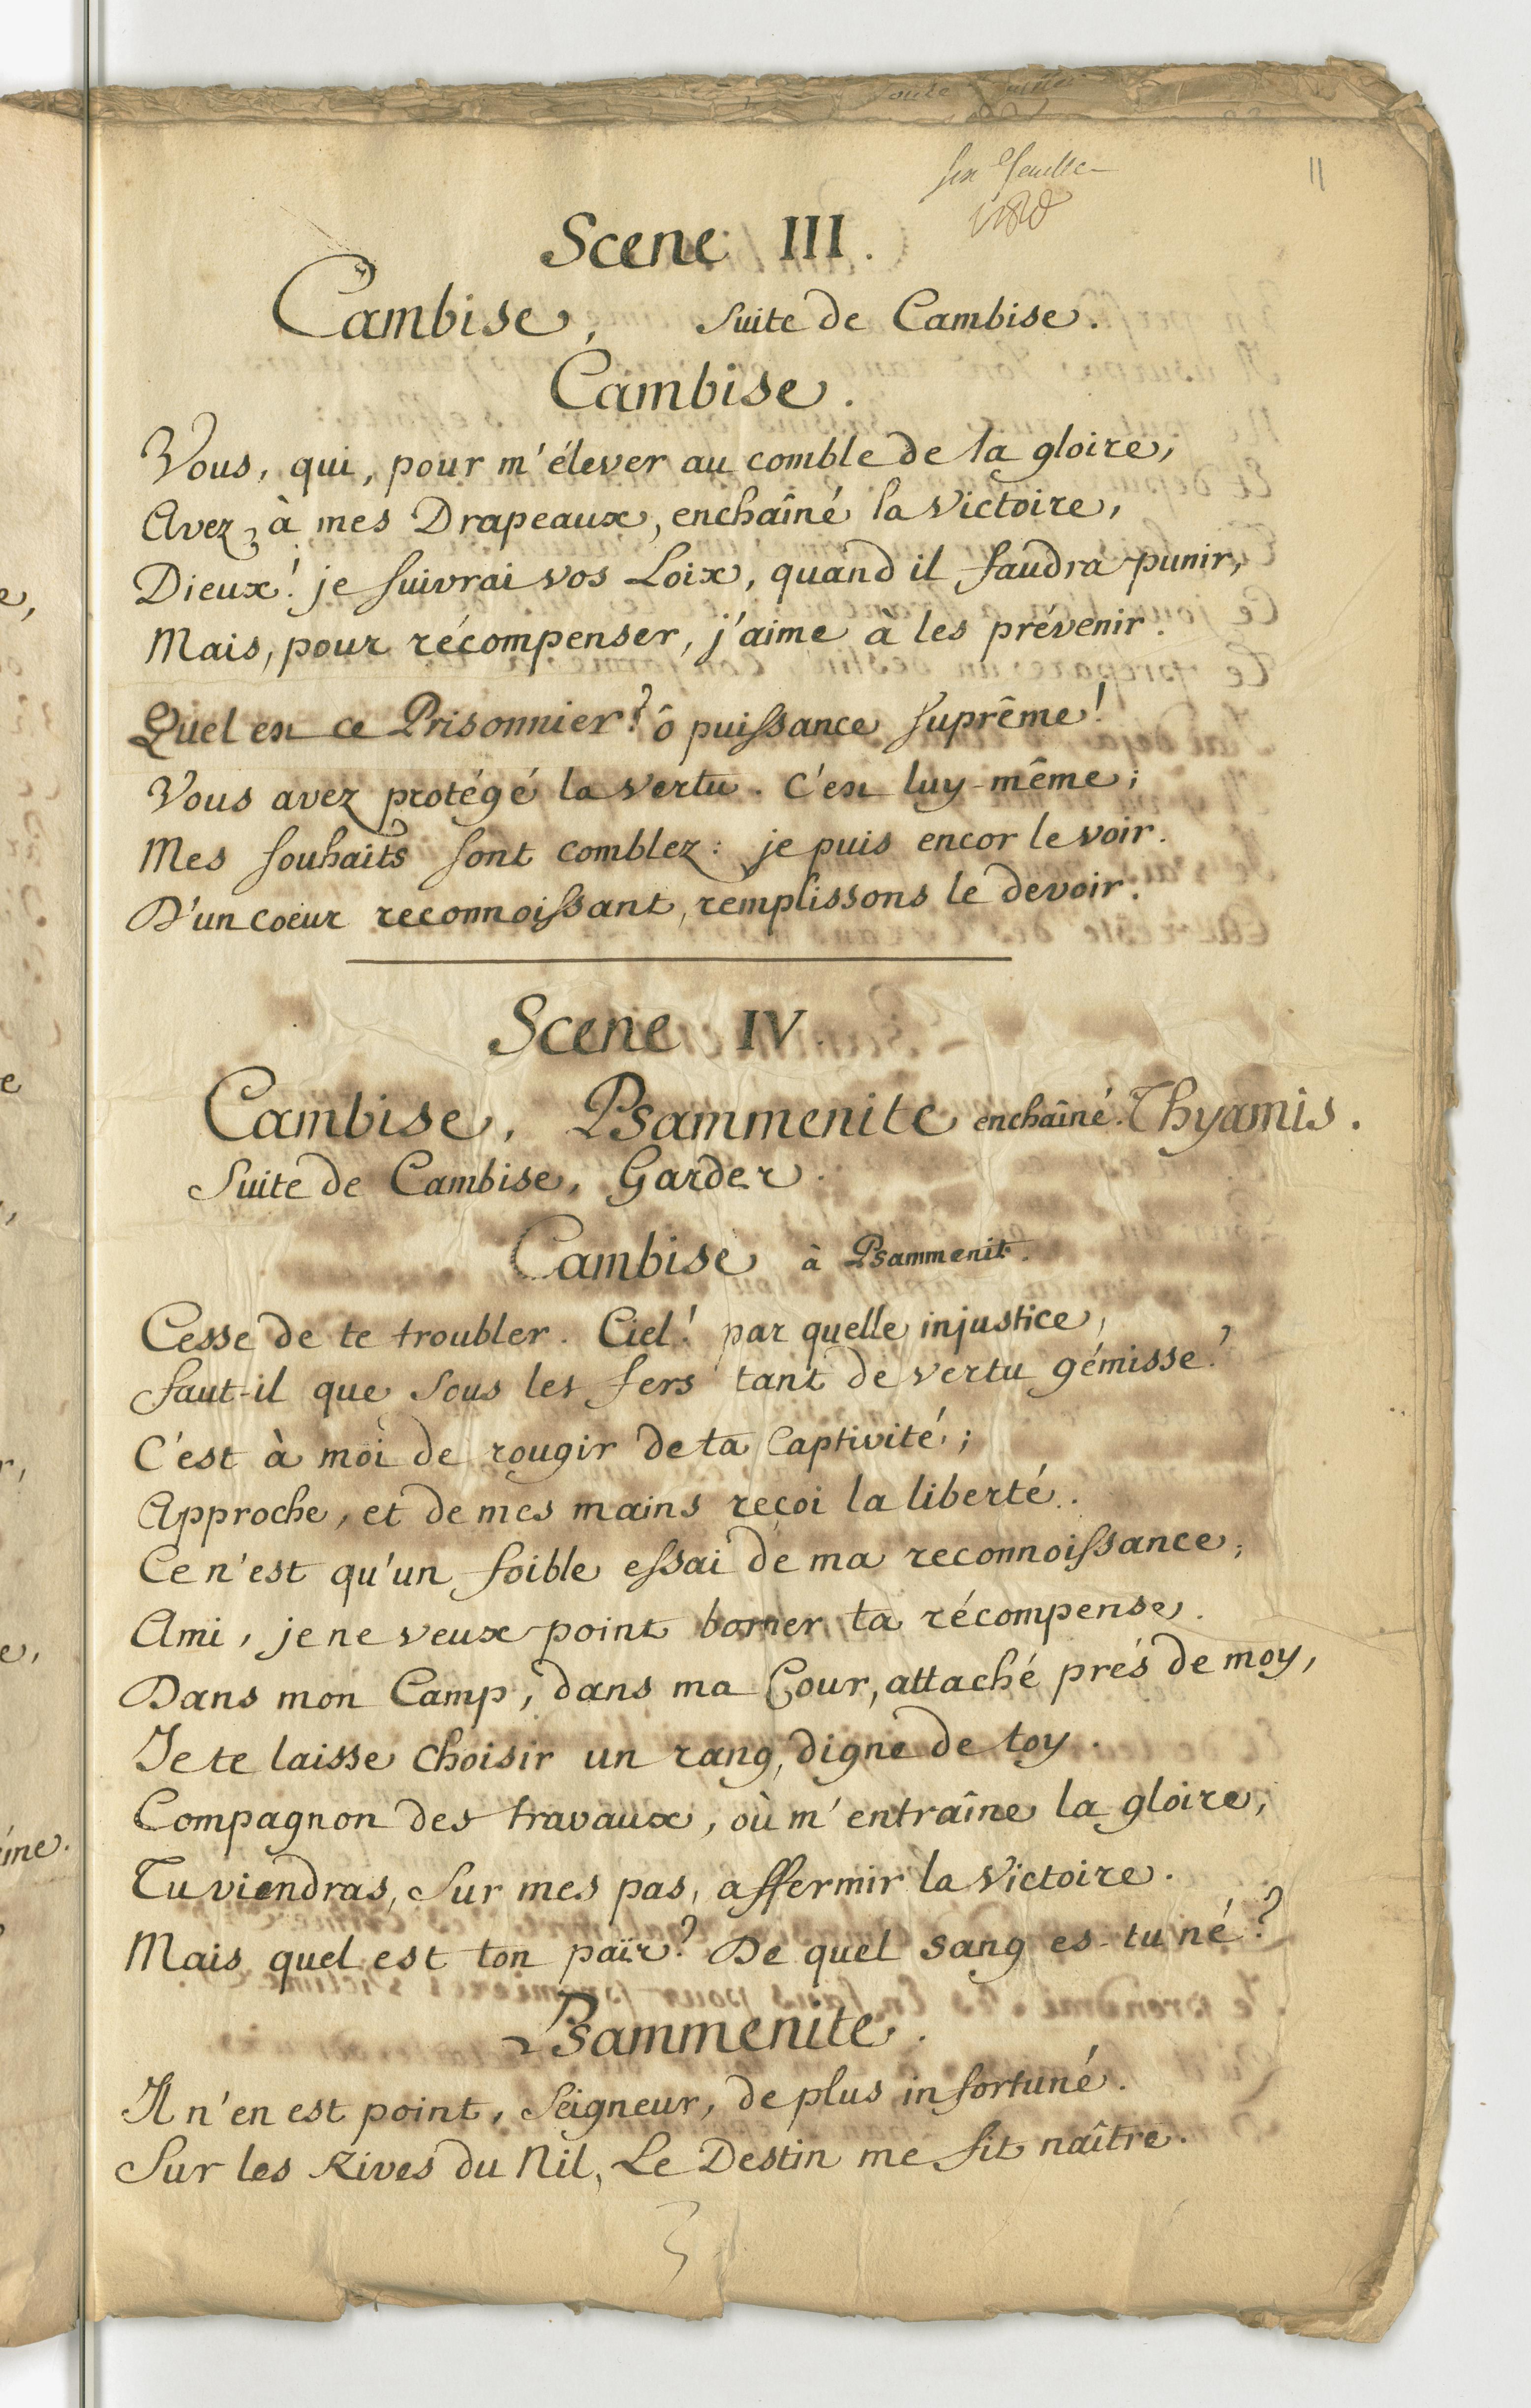 11
Scene III.
Cambise, Suite de Cambise.
Cambise.
Vous, qui, pour m'élever au comble de la gloire,
Avez, à mes Drapeaux, enchaîné la Victoire,
Dieux! je suivrai vos Loix, quand il faudra punir,
Mais, pour récompenser, j'aime à les prévenir.
Quel est ce Prisonnier? ô puissance suprême!
Vous avez protégé la vertu. C'est luy-même;
Mes souhaits sont comblez: je puis encor le voir.
D'un coeur reconnoissant, remplissons le devoir.
Scene IV.
Cambise, Psammenite enchaîné. Thyamis.
Suite de Cambise, Gardes.
Cambise à Psammenit.
Cesse de te troubler. Ciel! par quelle injustice,
faut-il que sous les fers tant de vertu gémisse?
C'est à moi de rougir de ta Captivité;
Approche, et de mes mains reçoi la liberté.
Ce n'est qu'un foible essai de ma reconnoissance;
Ami, je ne veux point borner ta récompense.
Dans mon Camp, dans ma Cour, attaché prés de moy,
Je te laisse choisir un rang, digne de toy.
Compagnon des travaux, où m'entraîne la gloire,
Tu viendras, sur mes pas, affermir la Victoire.
Mais quel est ton païs? De quel sang es-tu né?
Psammenite.
Il n'en est point, Seigneur, de plus infortuné.
Sur les Rives du Nil, Le Destin me fit naître.